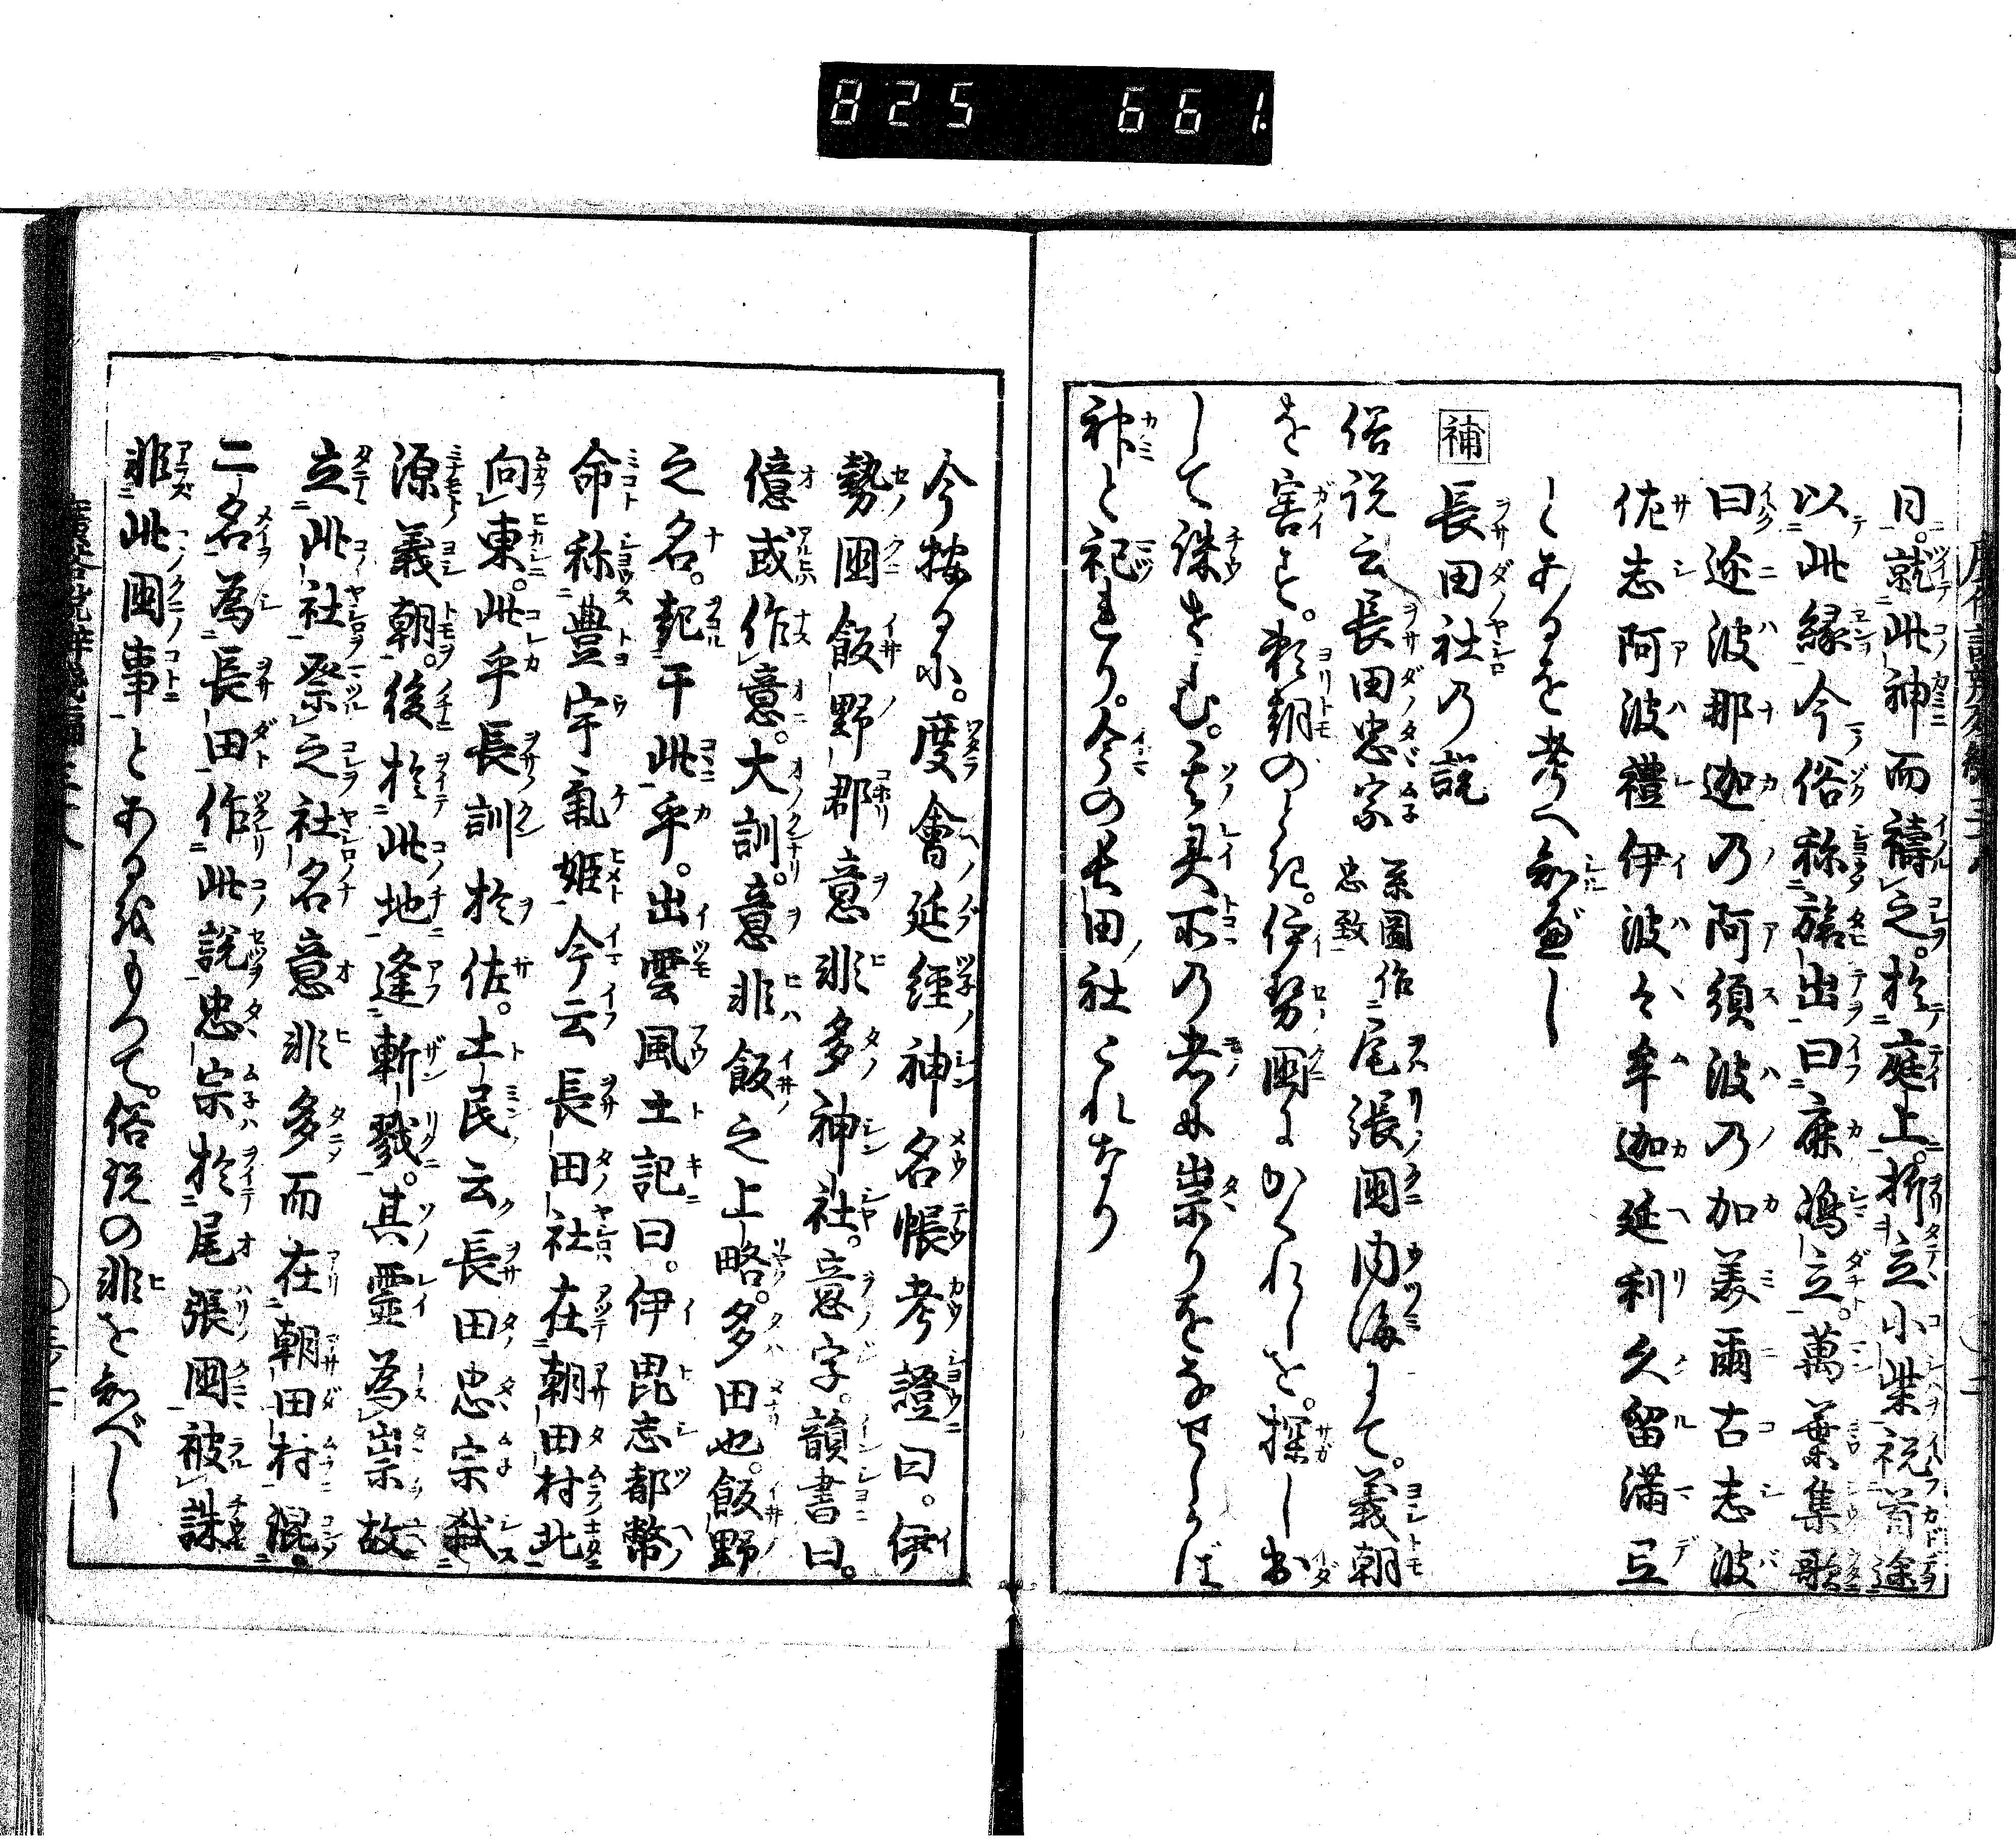 825 661
日。就此神而禱之。於庭上。折立小柴祝首途
以此縁今俗称旅出曰鹿嶋立。萬葉集歌
曰迩波那迦乃阿須波乃加美爾古志波
佐志阿波禮伊波々牟迦延利久留満弖
とあるを考へ知べし
補 長田社乃説
俗説云長田忠宗 系圖作忠致 尾張国内海にて。義朝
を害す。頼朝のとき。伊勢国にかくれしを。探し出
して誅せしむ。其霊所の者に祟りをなせしかば
神と祀まり。今の長田社これなり
今按るに。度會延経神名帳考證曰。伊
勢国飯野郡意非多神社。意字。韻書曰。
億或作意。大訓。意非飯之上略。多田也。飯野
之名。起于此乎。出雲風土記曰。伊毘志都幣
命称豊宇氣姫今云長田社在朝田村北
向東。此乎長訓於佐。土民云長田忠宗弑
源義朝。後於此地逢斬戮。其靈為祟故
立此社祭之社名意非多而在朝田村混
二名為長田作此説忠宗於尾張国被誅
非此国事とあるをもつて。俗説の非を知べし